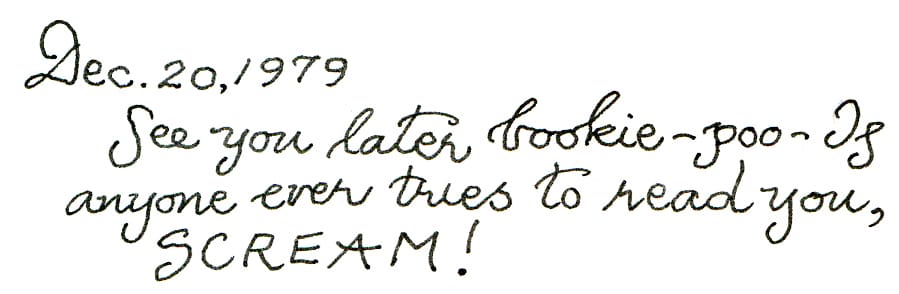 Dec. 20, 1979
See you later bookie-poo- If
anyone ever tries to read you,
SCREAM!